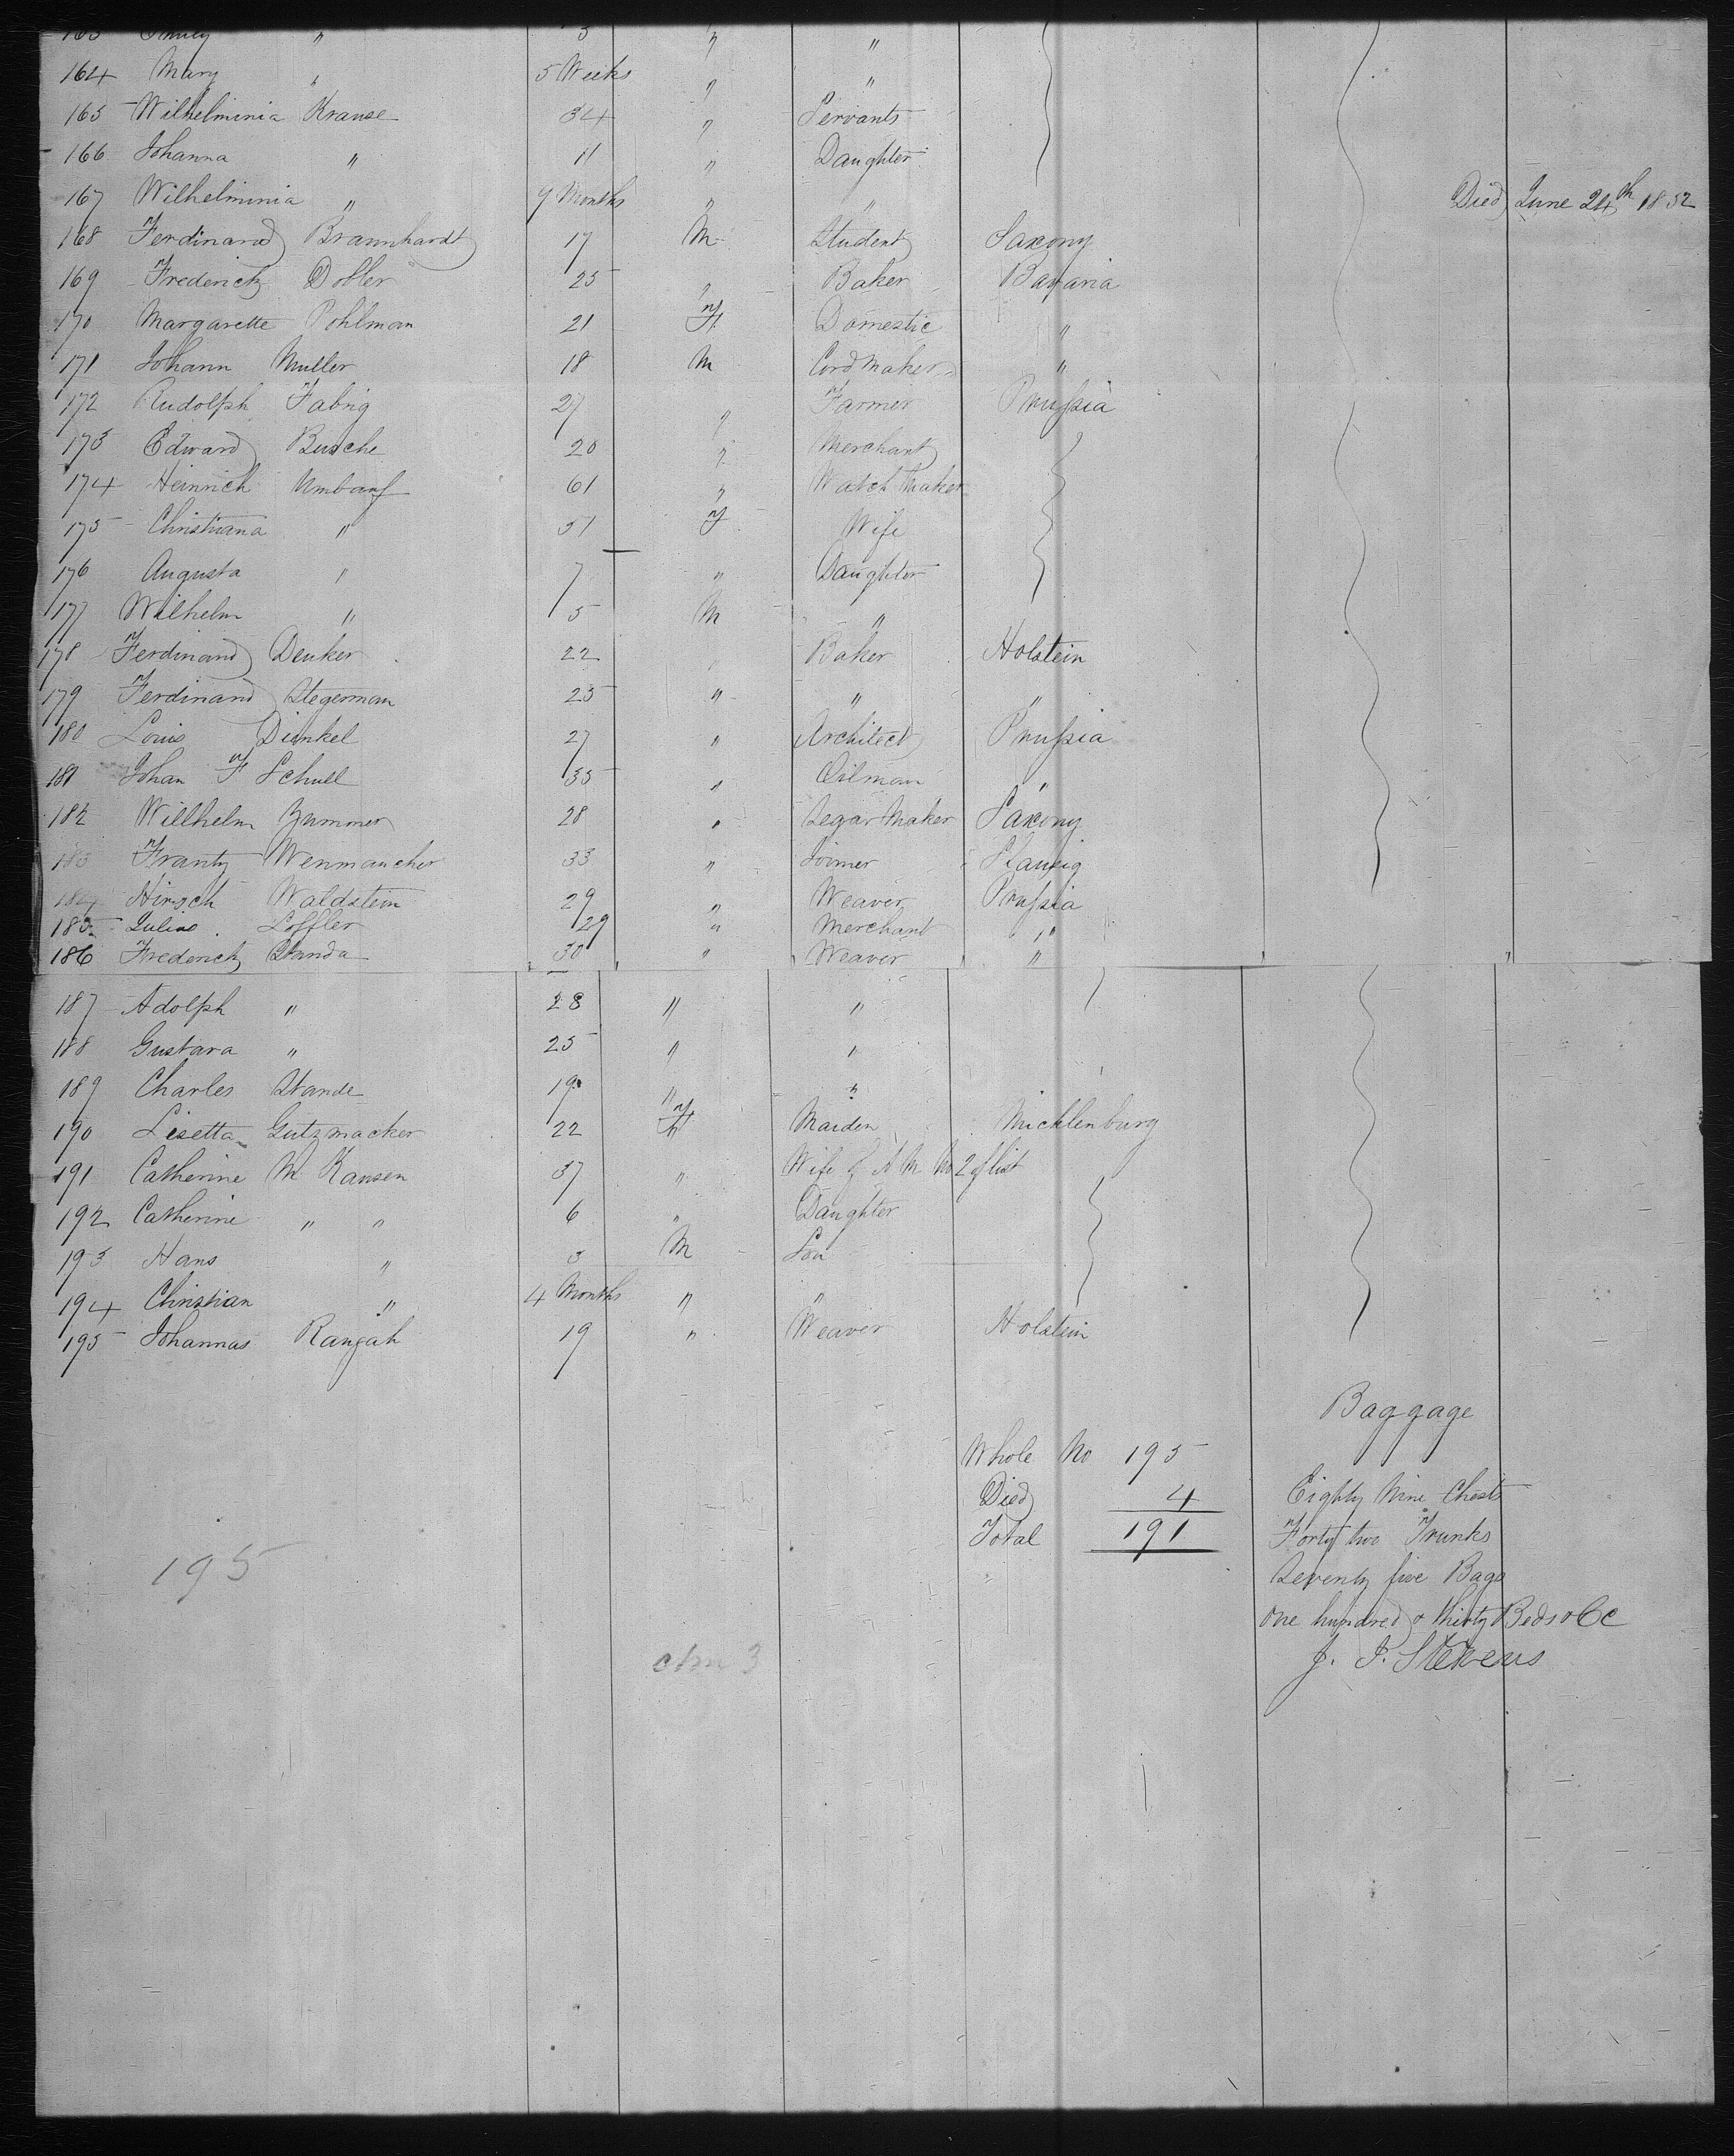 163 Emily " 3 " "
164 Mary " 5 Weeks " "
165 Wilhelminia Krause 34 " Servants
166 Johanna " 11 " Daughter
167 Wilhelminia " 9 Months " " Died June 24th 1852
168 Ferdinand Braunhardt 17 M Student Saxony
169 Frederick Dobler 25 " Baker Bavaria
170 Margarette Pohlman 21 F. Domestic "
171 Johann Muller 18 M Cord Maker "
172 Rudolph Fabrig 27 " Farmer Prussia
173 Edward Busche 20 " Merchant
174 Heinrich Umbauf 61 " Watch Maker
175 Christiana " 51 F Wife
176 Augusta " 7 " Daughter
177 Wilhelm " 5 M "
178 Ferdinand Denker 22 " Baker Holstein
179 Ferdinand Stegerman 25 " " "
180 Louis Dinkel 27 " Architect Prussia
181 Johan F Schull 35 " Oilman "
182 Willhelm Zummer 28 " Segar Maker Saxony
183 Frantz Wenmaucher 33 " Joiner
184 Hirsch Waldstein 29 " Weaver Prussia
185 Julius Loffler 29 " Merchant "
186 Frederick Standa 30 " Weaver "
187 Adolph " 28 " "
188 Gustava " 25 " "
189 Charles Stande 19 " "
190 Lisetta Gutzmacker 22 F Maiden Micklenburg
191 Catherine M Kausen 37 " Wife of A M No 2 of list
192 Catherine " " 6 " Daughter
193 Hans " 3 M Son
194 Christian " 4 Months " "
195 Johannas Raugah 19 " Weaver Holstein
Baggage
Whole No 195
Died 4 Eighty Nine Chests
Total 191 Forty two Trunks
195 Seventy five Bags
One hundred & thirty Beds &Cc
J. J. Stevens